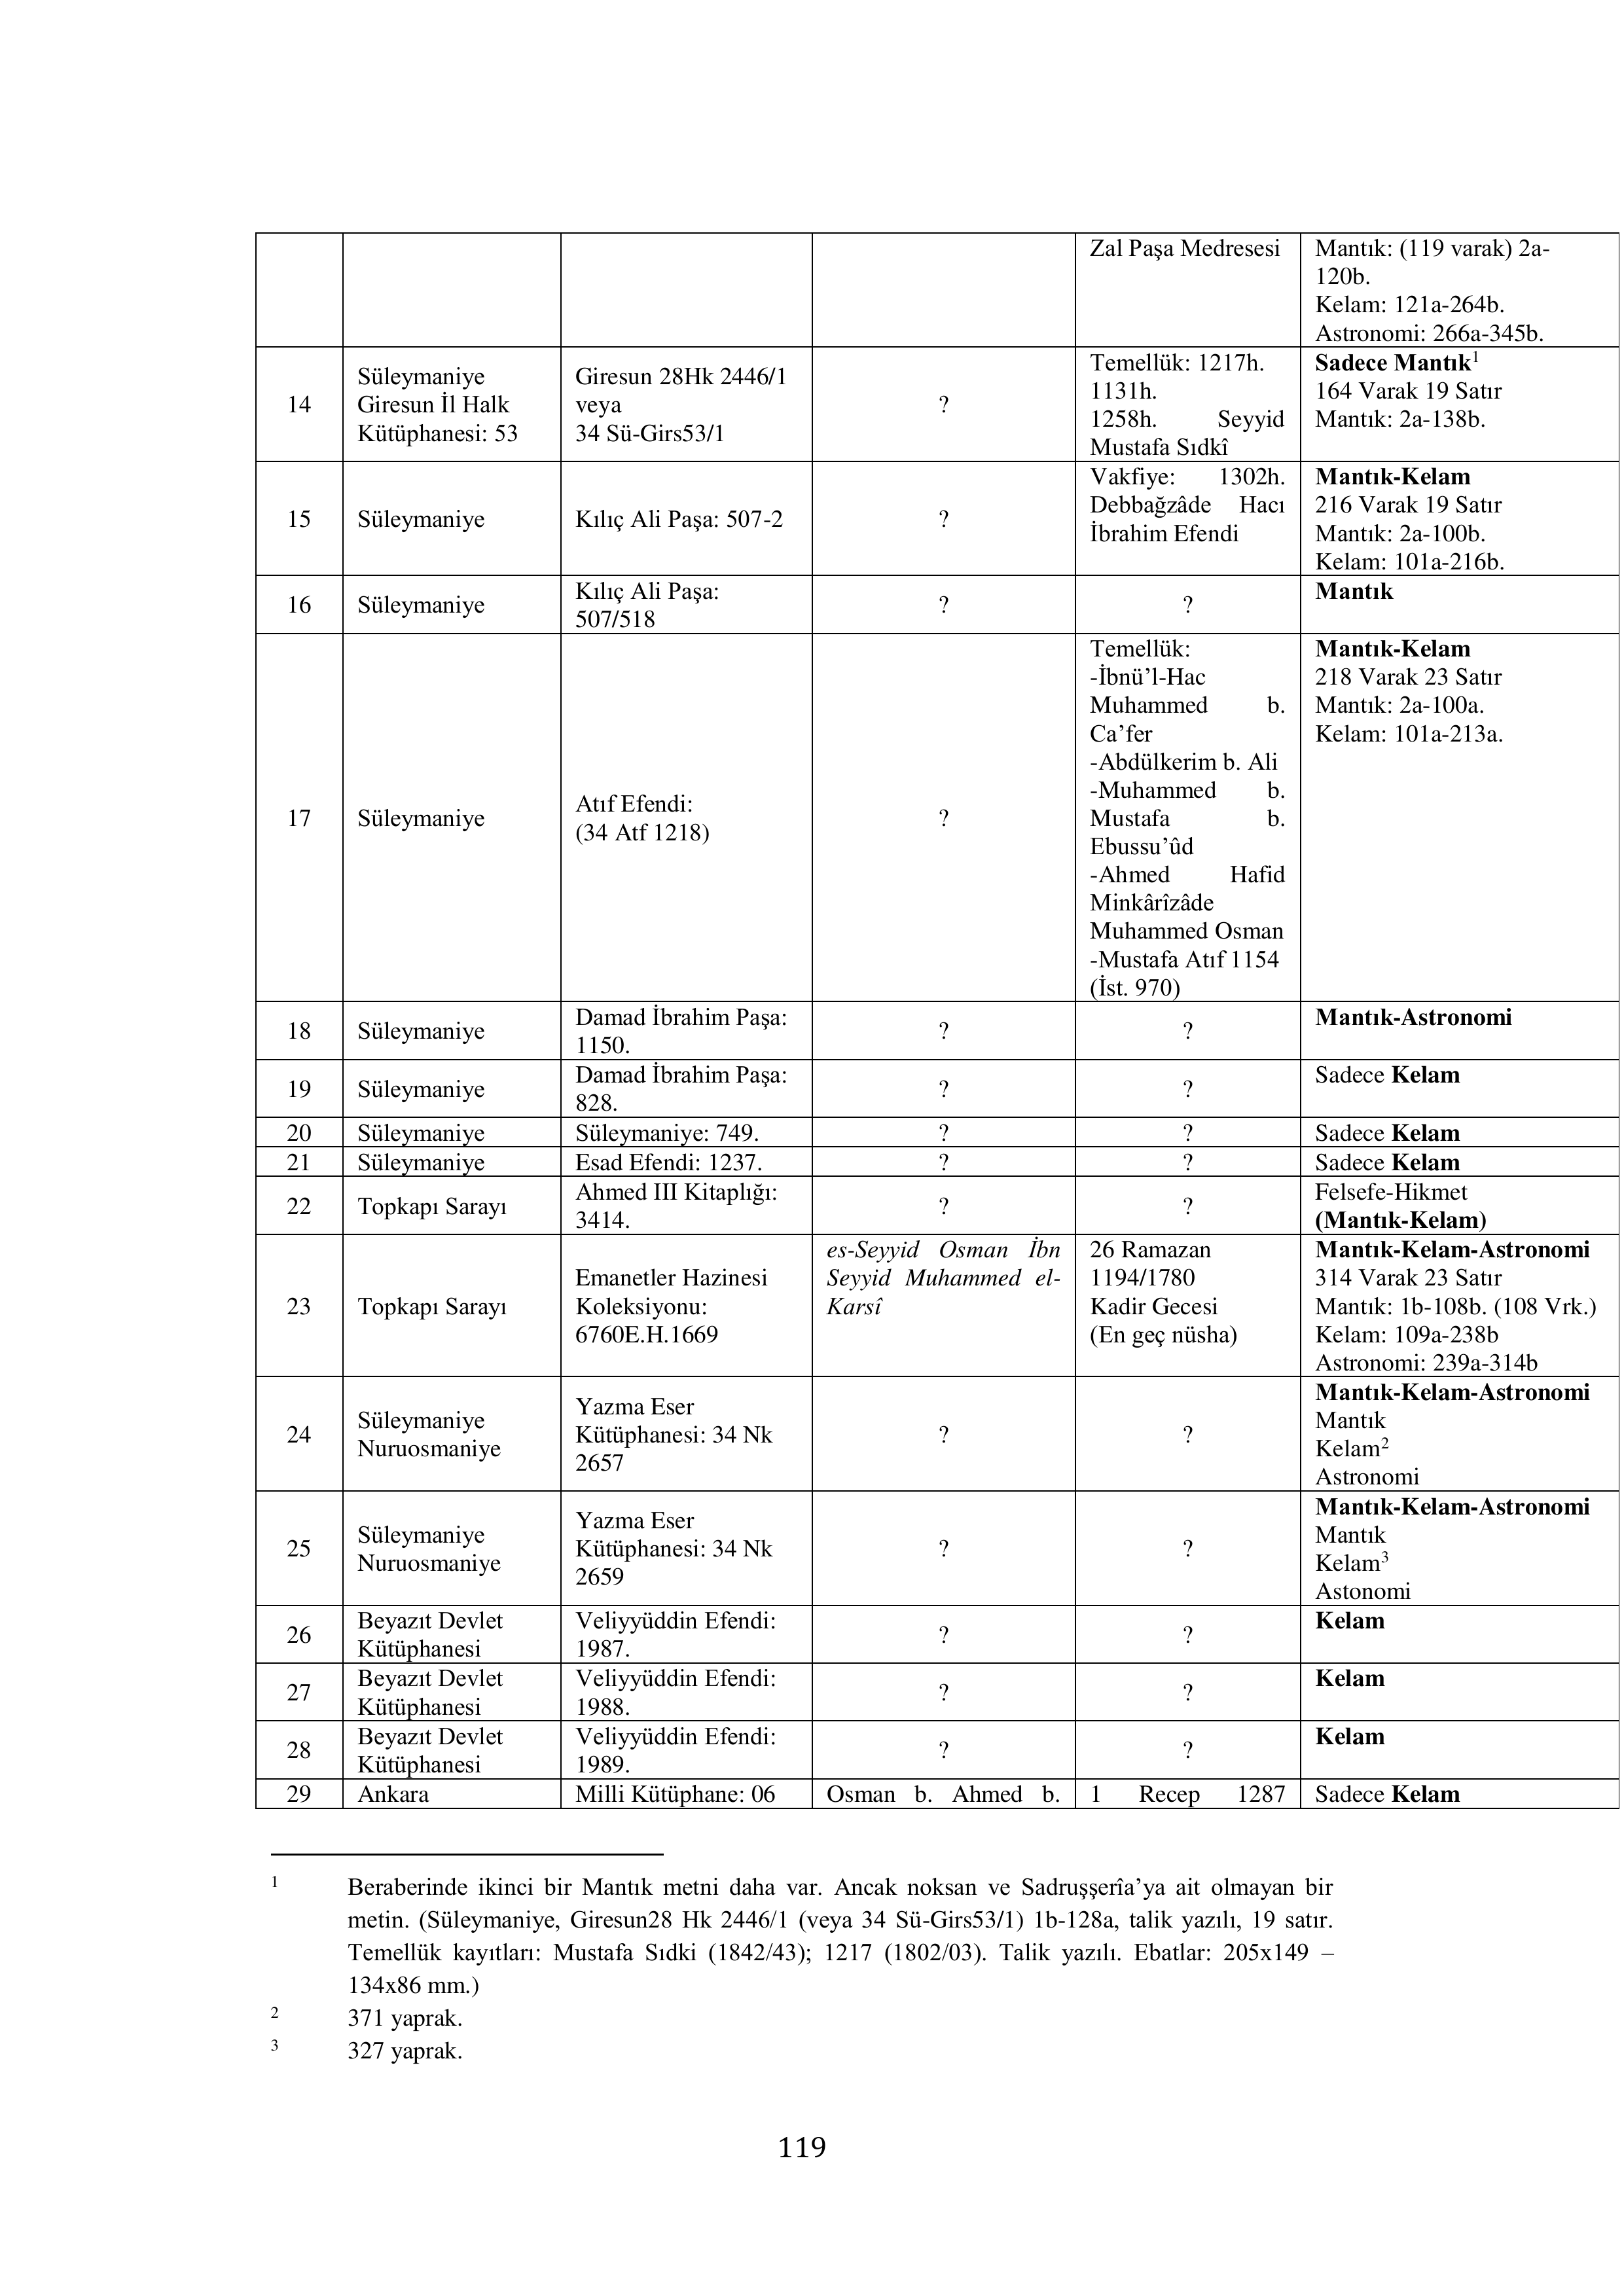 Zal Paşa Medresesi
Mantık: (119 varak) 2a-
120b.
Kelam: 121a-264b.
Astronomi: 266a-345b.
14
Süleymaniye
Giresun İl Halk
Kütüphanesi: 53
Giresun 28Hk 2446/1
veya
34 Sü-Girs53/1
?
Temellük: 1217h.
1131h.
1258h. Seyyid
Mustafa Sıdkî
Sadece Mantık1
164 Varak 19 Satır
Mantık: 2a-138b.
15
Süleymaniye
Kılıç Ali Paşa: 507-2
?
Vakfiye: 1302h.
Debbağzâde Hacı
İbrahim Efendi
Mantık-Kelam
216 Varak 19 Satır
Mantık: 2a-100b.
Kelam: 101a-216b.
16
Süleymaniye
Kılıç Ali Paşa:
507/518
?
?
Mantık
17
Süleymaniye
Atıf Efendi:
(34 Atf 1218)
?
Temellük:
-İbnü’l-Hac
Muhammed b.
Ca’fer
-Abdülkerim b. Ali
-Muhammed b.
Mustafa b.
Ebussu’ûd
-Ahmed Hafid
Minkârîzâde
Muhammed Osman
-Mustafa Atıf 1154
(İst. 970)
Mantık-Kelam
218 Varak 23 Satır
Mantık: 2a-100a.
Kelam: 101a-213a.
18
Süleymaniye
Damad İbrahim Paşa:
1150.
?
?
Mantık-Astronomi
19
Süleymaniye
Damad İbrahim Paşa:
828.
?
?
Sadece Kelam
20
Süleymaniye
Süleymaniye: 749.
?
?
Sadece Kelam
21
Süleymaniye
Esad Efendi: 1237.
?
?
Sadece Kelam
22
Topkapı Sarayı
Ahmed III Kitaplığı:
3414.
?
?
Felsefe-Hikmet
(Mantık-Kelam)
23
Topkapı Sarayı
Emanetler Hazinesi
Koleksiyonu:
6760E.H.1669
es-Seyyid Osman İbn
Seyyid Muhammed el-
Karsî
26 Ramazan
1194/1780
Kadir Gecesi
(En geç nüsha)
Mantık-Kelam-Astronomi
314 Varak 23 Satır
Mantık: 1b-108b. (108 Vrk.)
Kelam: 109a-238b
Astronomi: 239a-314b
24
Süleymaniye
Nuruosmaniye
Yazma Eser
Kütüphanesi: 34 Nk
2657
?
?
Mantık-Kelam-Astronomi
Mantık
Kelam2
Astronomi
25
Süleymaniye
Nuruosmaniye
Yazma Eser
Kütüphanesi: 34 Nk
2659
?
?
Mantık-Kelam-Astronomi
Mantık
Kelam3
Astonomi
26
Beyazıt Devlet
Kütüphanesi
Veliyyüddin Efendi:
1987.
?
?
Kelam
27
Beyazıt Devlet
Kütüphanesi
Veliyyüddin Efendi:
1988.
?
?
Kelam
28
Beyazıt Devlet
Kütüphanesi
Veliyyüddin Efendi:
1989.
?
?
Kelam
29
Ankara
Milli Kütüphane: 06
Osman b. Ahmed b.
1 Recep 1287
Sadece Kelam
1 Beraberinde ikinci bir Mantık metni daha var. Ancak noksan ve Sadruşşerîa’ya ait olmayan bir
metin. (Süleymaniye, Giresun28 Hk 2446/1 (veya 34 Sü-Girs53/1) 1b-128a, talik yazılı, 19 satır.
Temellük kayıtları: Mustafa Sıdki (1842/43); 1217 (1802/03). Talik yazılı. Ebatlar: 205x149 –
134x86 mm.)
2 371 yaprak.
3 327 yaprak.
119